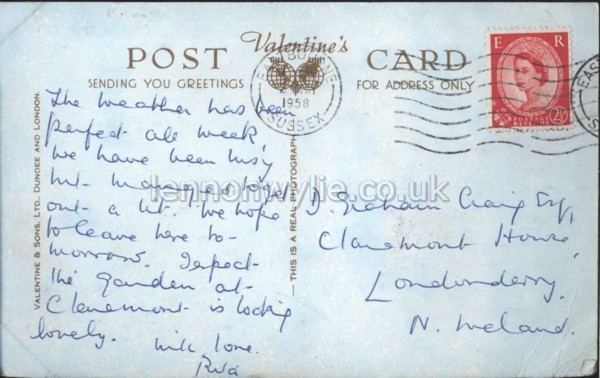 POST Valentine's CARD
SENDING YOU GREETINGS FOR ADDRESS ONLY
EASTBOURNE
1958
SUSSEX
E R
POSTAGE REVENUE
2½
EAS
S
VALENTINE & SONS, LTD., DUNDEE AND LONDON.
THIS IS A REAL PHOTOGRAPH
The weather has been
perfect all week
We have been busy
but managed to get
out a bit. We hope
to leave here to-
morrow. I expect
the garden at
Claremont is looking
lovely.
With love.
Rita
D. Graham Craig Esq,
Claremont House,
Londonderry,
N. Ireland.
lennonwylie.co.uk